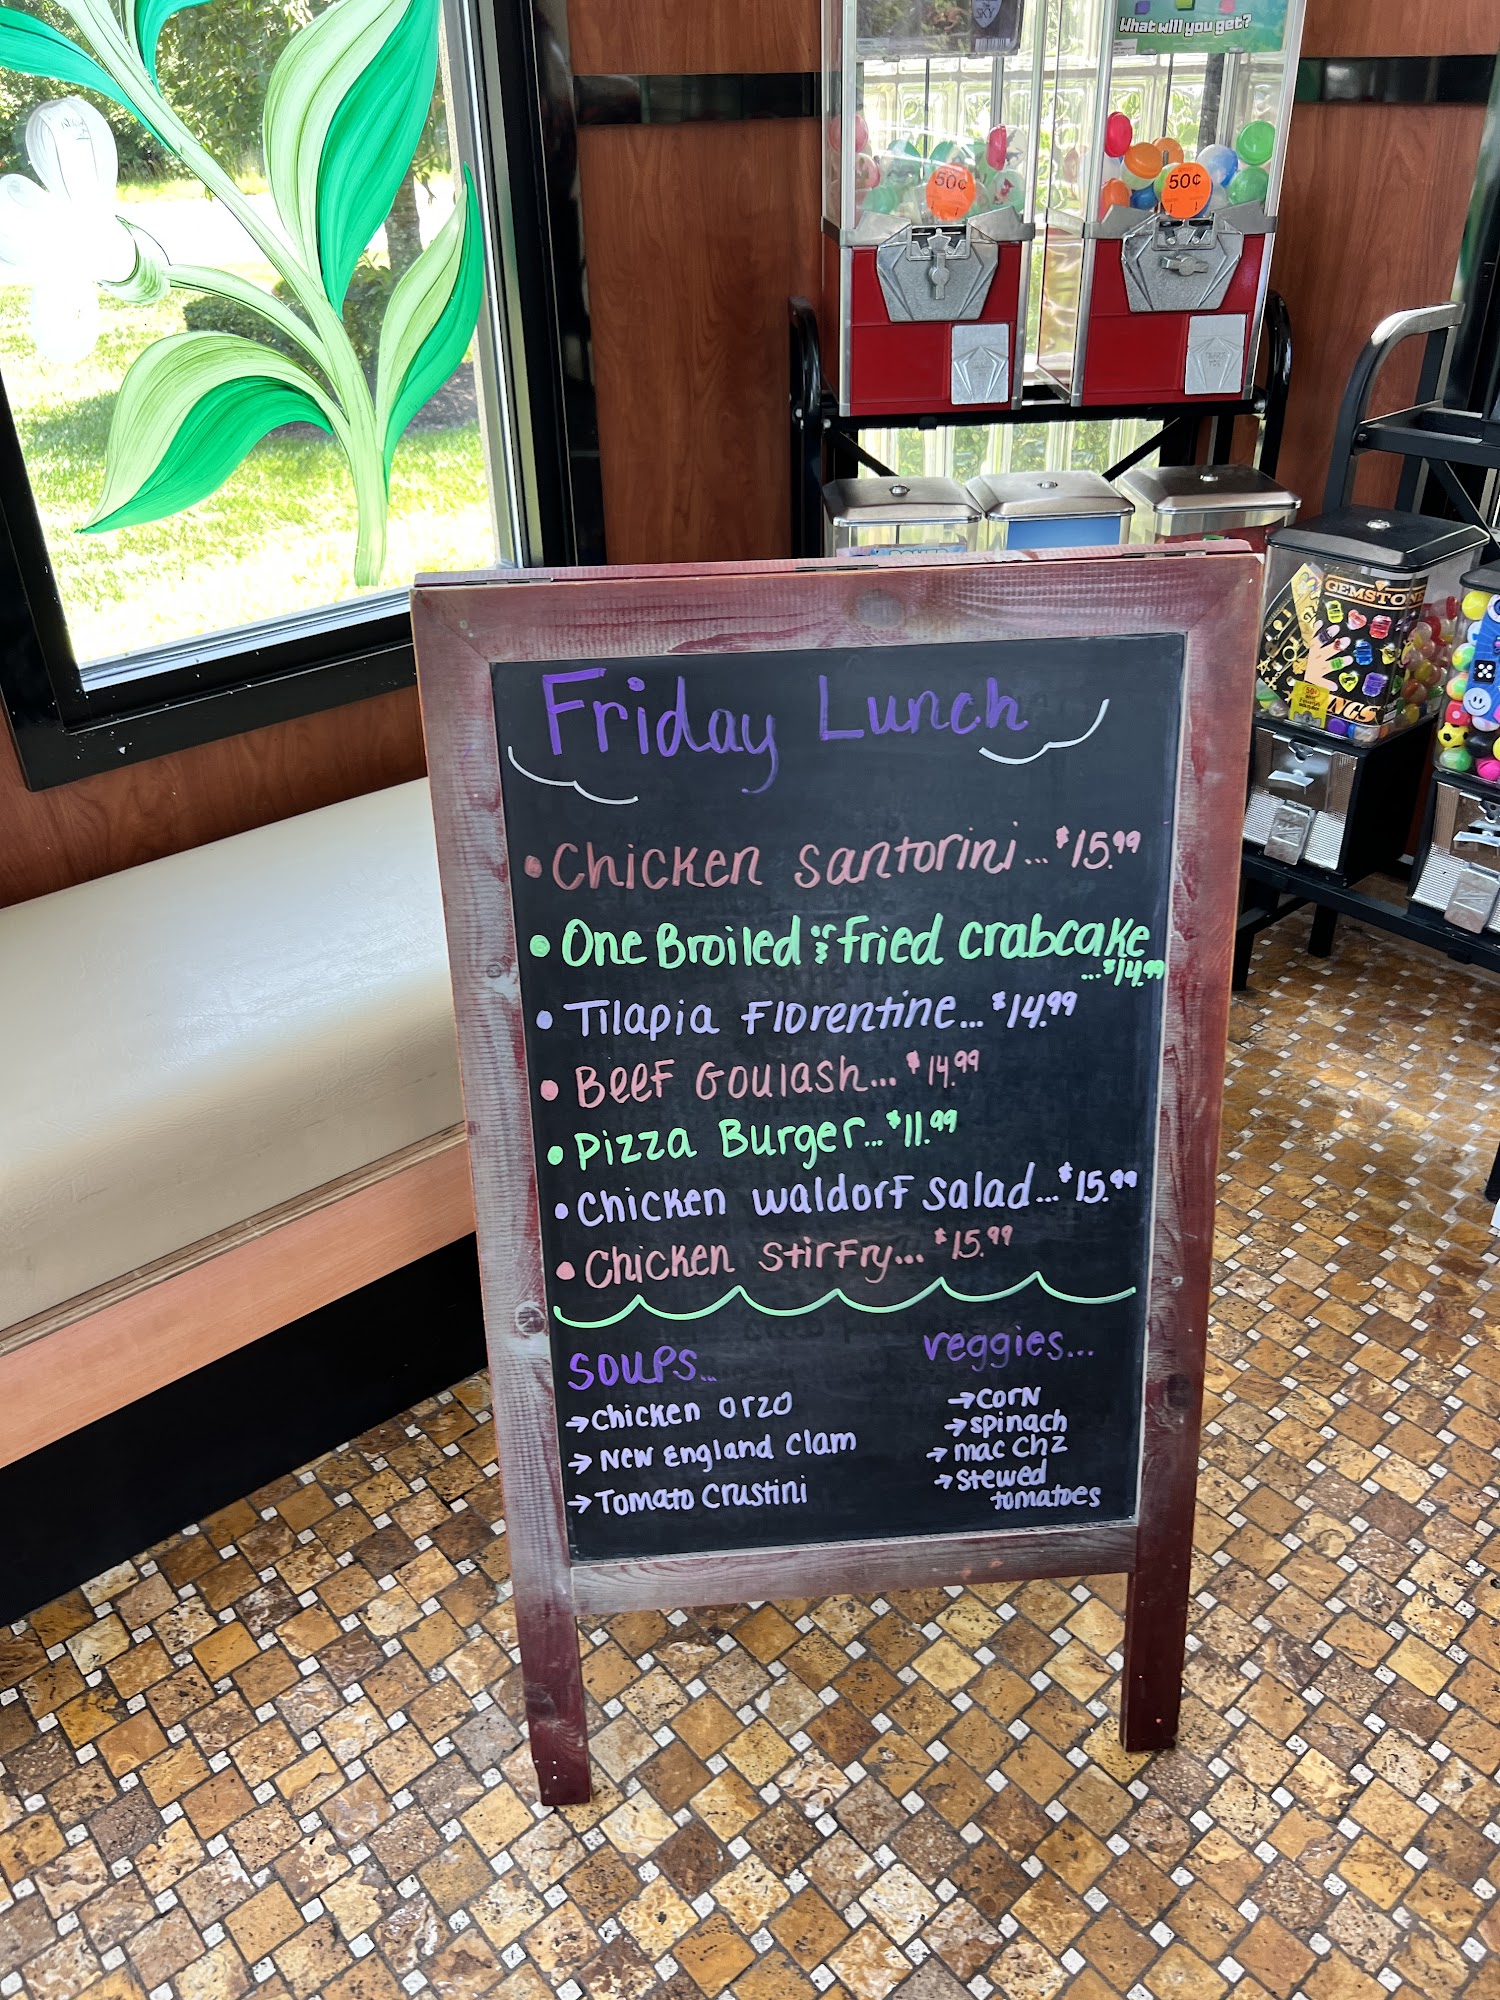 SKY
What will you get?
50¢
50¢
GEMSTONE
NGS
Friday Lunch
• Chicken Santorini... $15.99
• One Broiled or Fried Crabcake
... $14.99
• Tilapia Florentine... $14.99
• Beef Goulash... $14.99
• Pizza Burger... $11.99
• Chicken Waldorf Salad... $15.99
• Chicken Stirfry... $15.99
Soups...
→ Chicken Orzo
→ New England Clam
→ Tomato Crustini
veggies...
→ Corn
→ Spinach
→ Mac Chz
→ Stewed
tomatoes